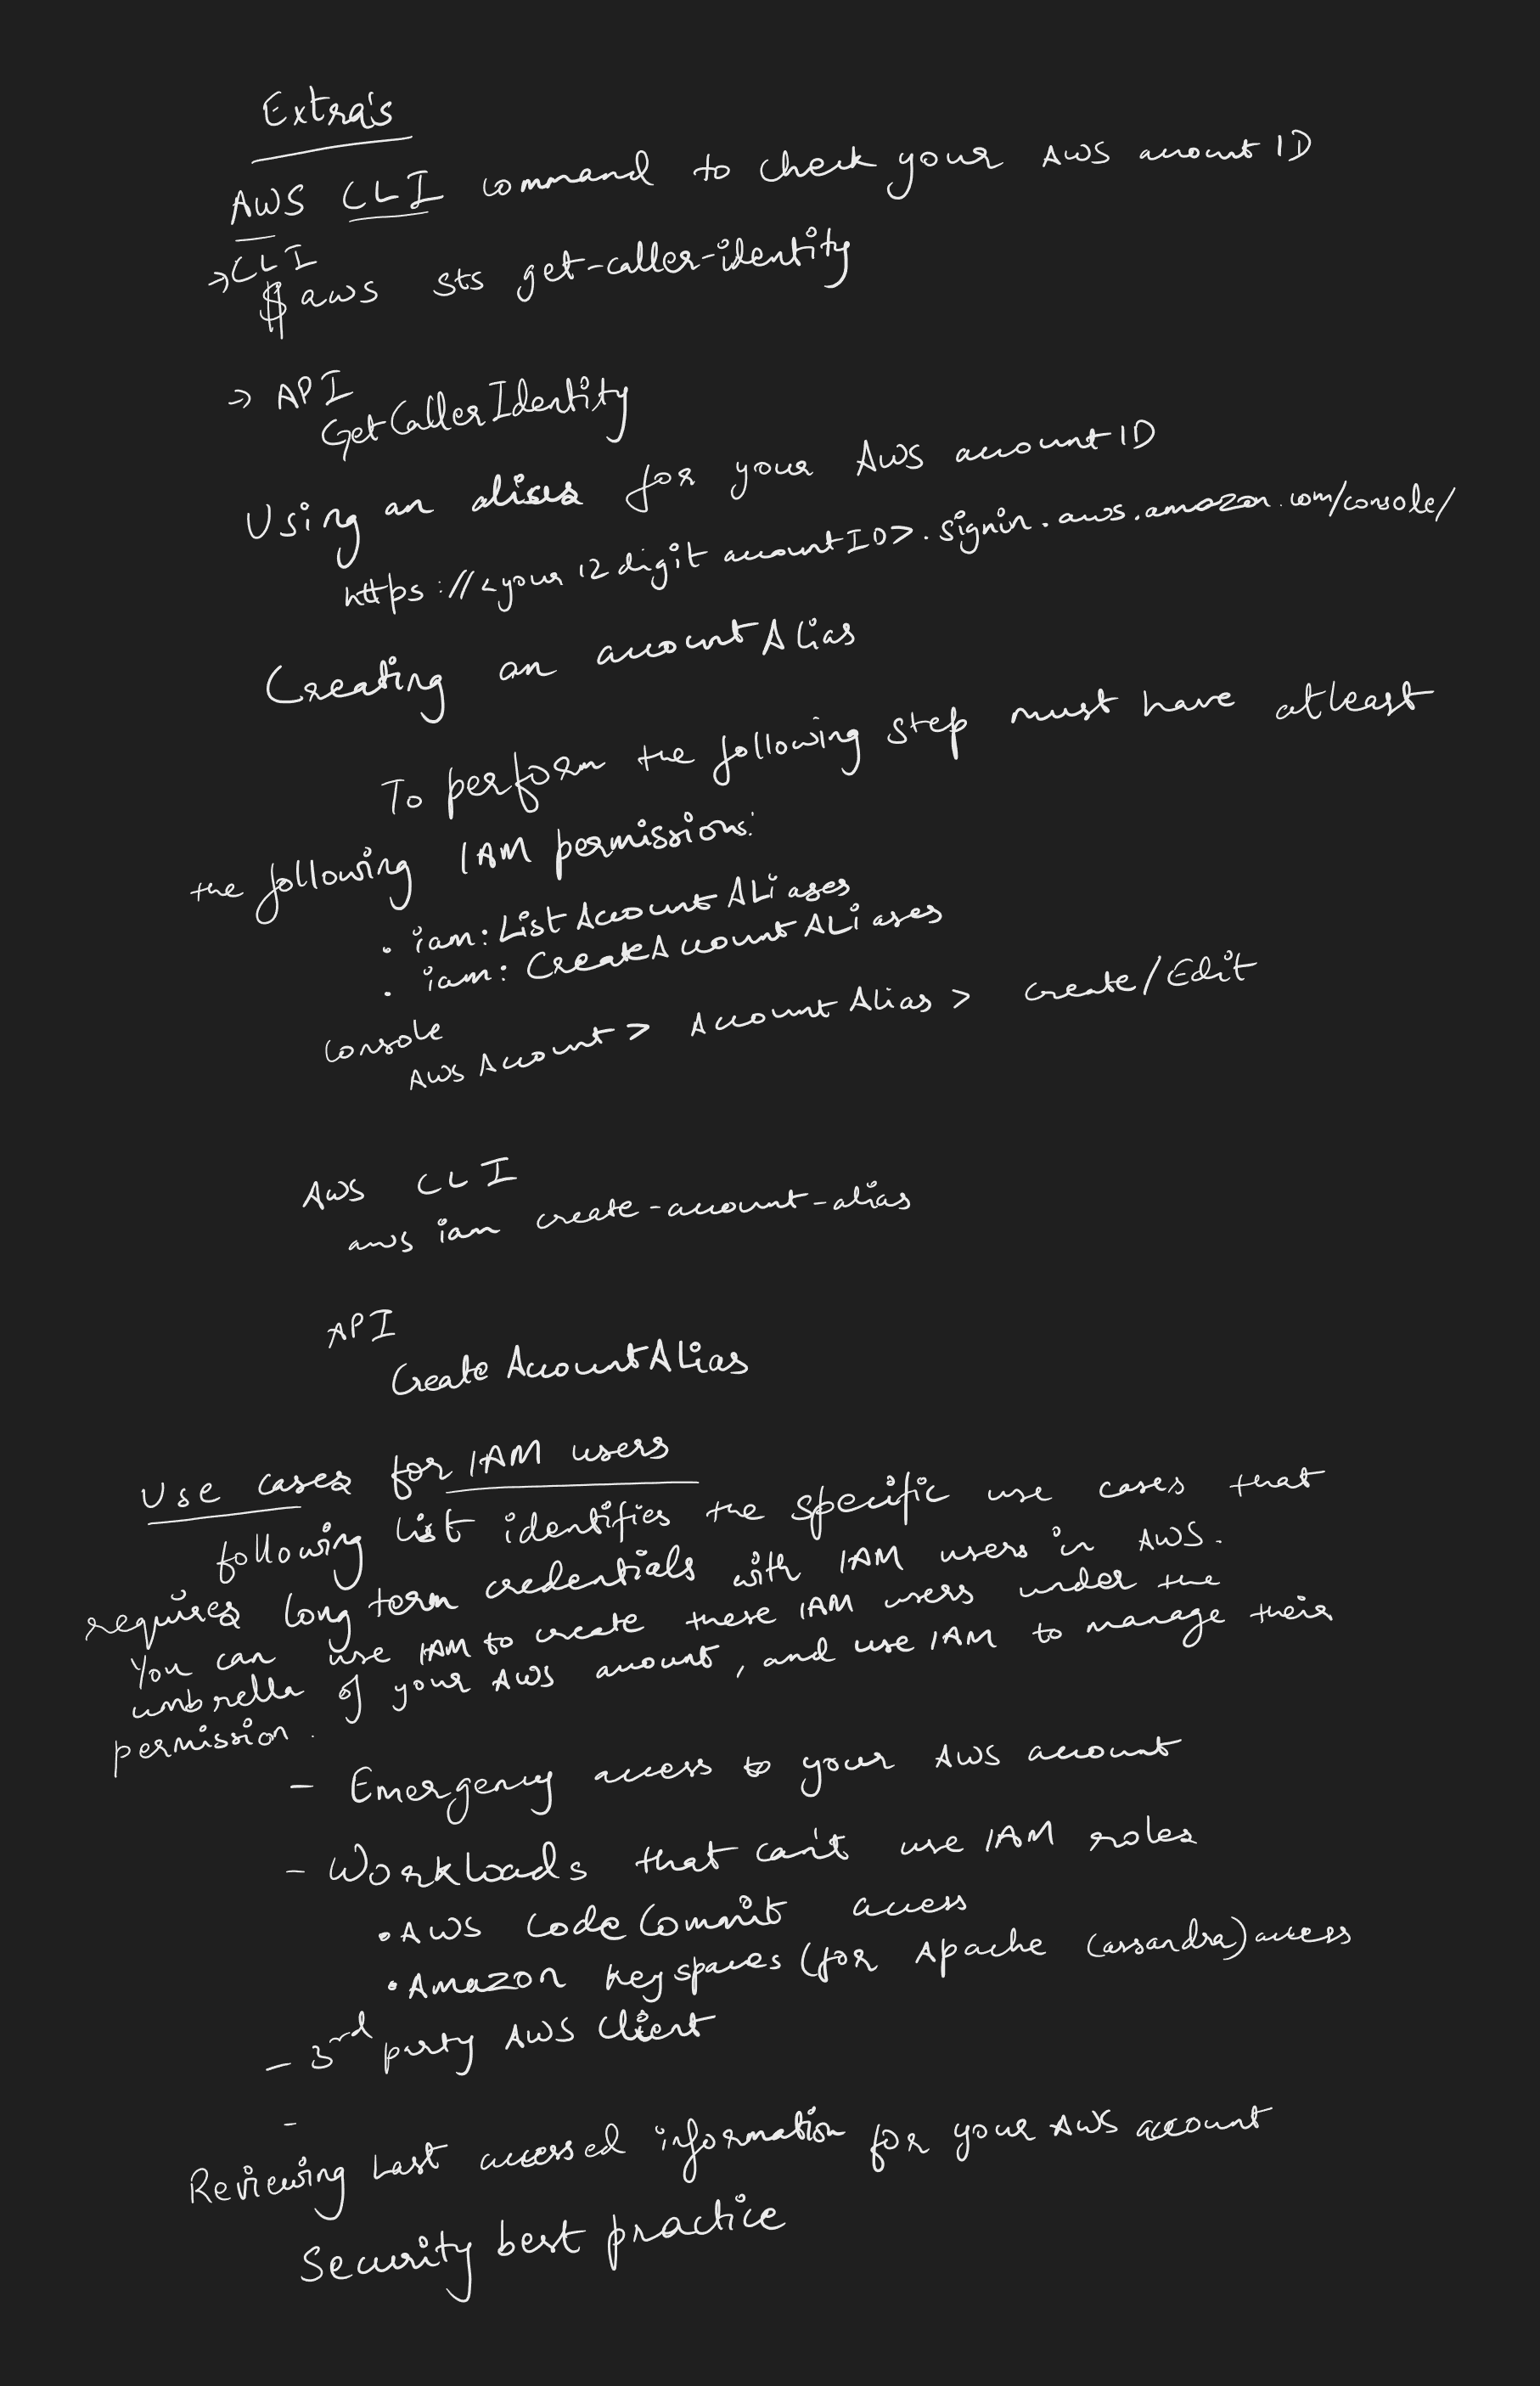 Extra's
AWS CLI command to check your AWS account ID
→ CLI
$ aws sts get-caller-identity
→ API
GetCallerIdentity
Using an alises for your AWS account ID
https://<your 12 digit account ID>.signin.aws.amazon.com/console/
Creating an account Alias
To perform the following step must have atleast
the following IAM permissions:
• iam:ListAccountALiases
• iam: CreateAccountALiases
Console
AWS Account > Account Alias > create/Edit
AWS CLI
aws iam create-account-alias
API
CreateAccountALias
Use cases for IAM users
following list identifies the specific use cases that
requires long term credentials with IAM users in AWS.
You can use IAM to create these IAM users under the
umbrella of your AWS account, and use IAM to manage their
permission.
- Emergency access to your AWS account
- Workloads that can't use IAM roles
• AWS CodeCommit access
• Amazon Keyspaces (for Apache Cassandra) access
- 3rd party AWS Client
-
Reviewing Last accessed information for your AWS account
Security best practice